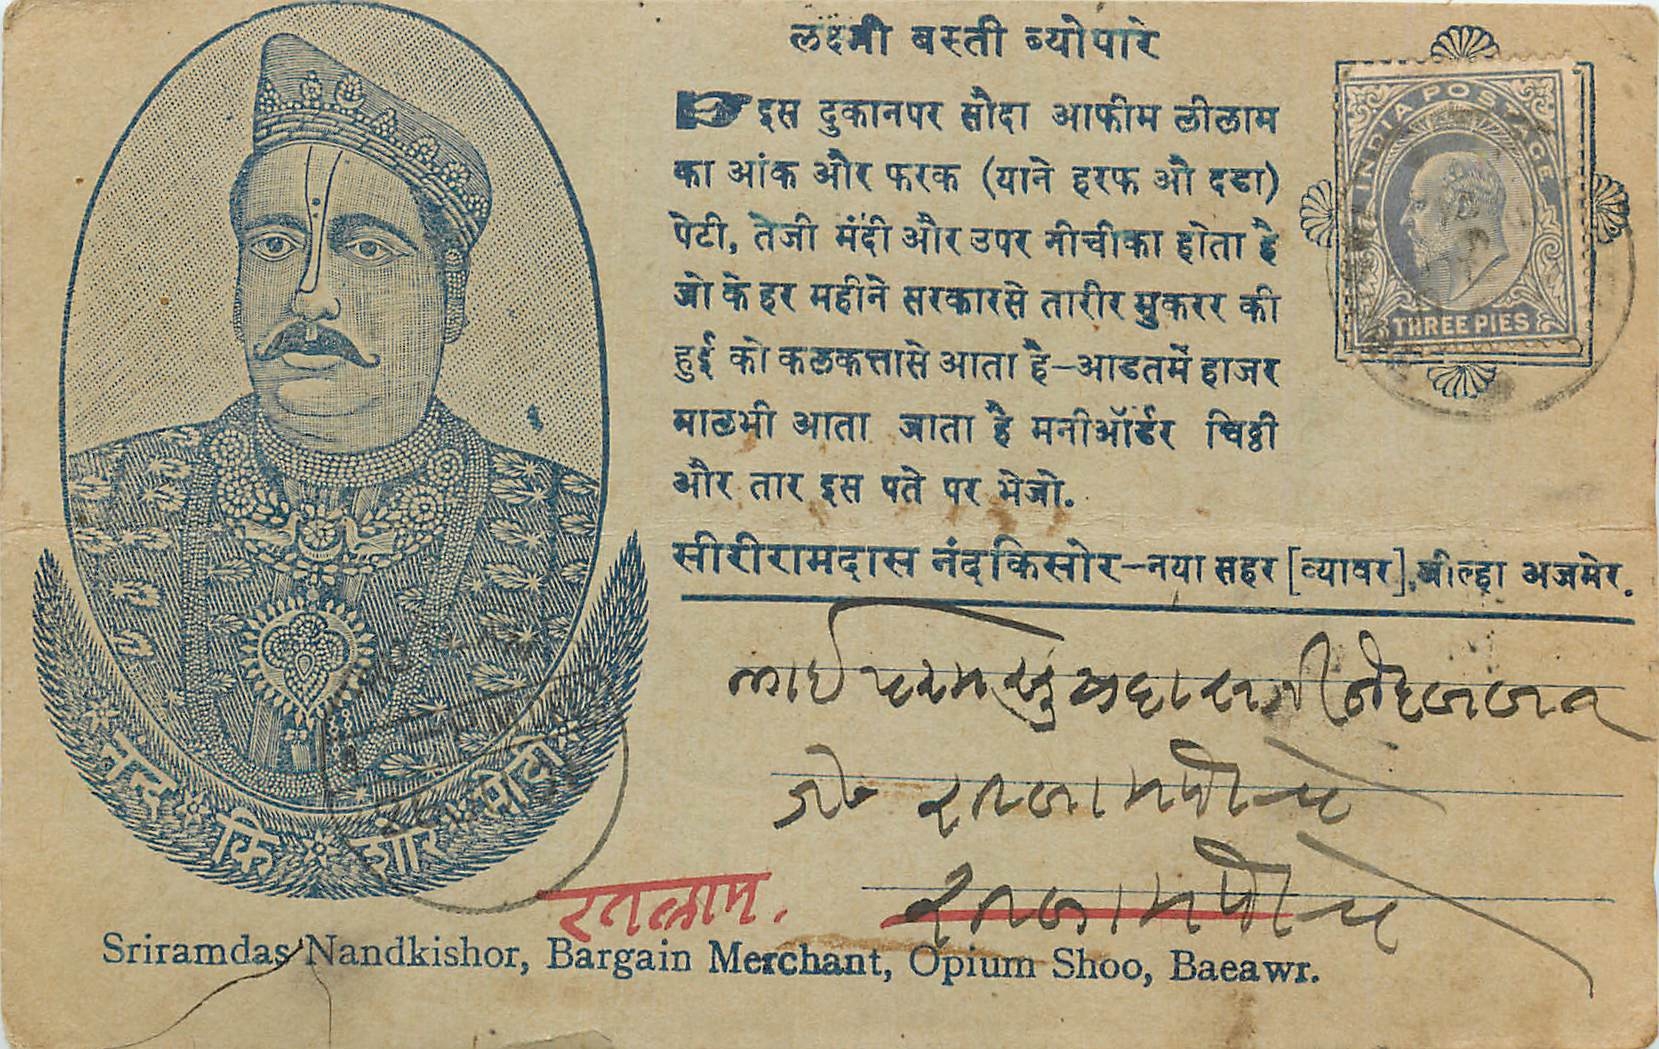 लक्ष्मी बस्ती ब्योपारे
इस दुकानपर सौदा आफीम लीलाम
का आंक और फरक (याने हरफ औ दडा)
पेटी, तेजी मंदी और उपर नीचीका होता है
जो के हर महीने सरकारसे तारीर मुकरर की
हुई को कलकत्तासे आता है—आडतमें हाजर
मालभी आता जाता है मनीऑर्डर चिठ्ठी
और तार इस पते पर भेजो.
सीरीरामदास नंदकिसोर—नया सहर [ब्यावर] जील्हा अजमेर.
INDIA POSTAGE
THREE PIES
नन्द कि शोर मोदी
रतलाम.
Sriramdas Nandkishor, Bargain Merchant, Opium Shoo, Baeawr.